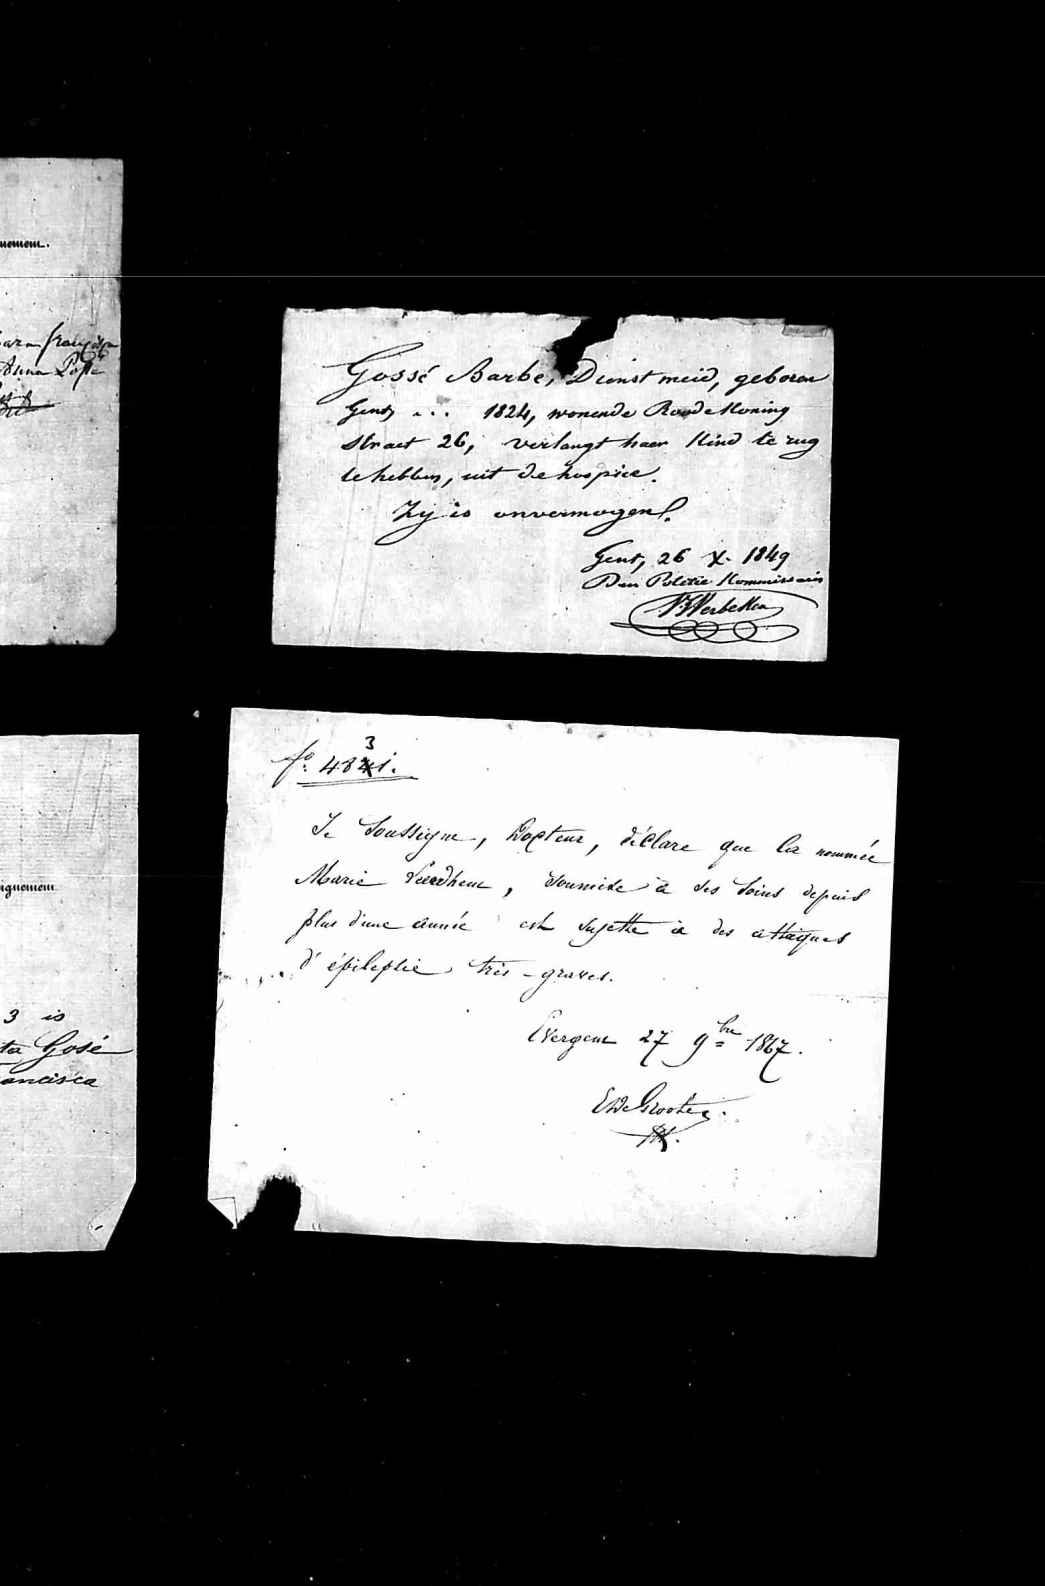 nement.
Anna
Gossé Barbe, Dienstmeid, geboren
Gent, ... 1824, wonende Roode Koning
Straet 26, verlangt haer Kind te rug
te hebben, uit de hospice.
Zij is onvermogend.
Gent, 26 X. 1849
Den Politie Kommissaris
gnement
3 is
ta Gosé
ancisca
fo. 4831.
Je Soussigné, Docteur, déclare que la nommée
Marie, soumise à ses soins depuis
plus d'une année est sujette à des attaques
d'épilepsie très-graves.
Evergem 27 9bre 1867.
E De Groote